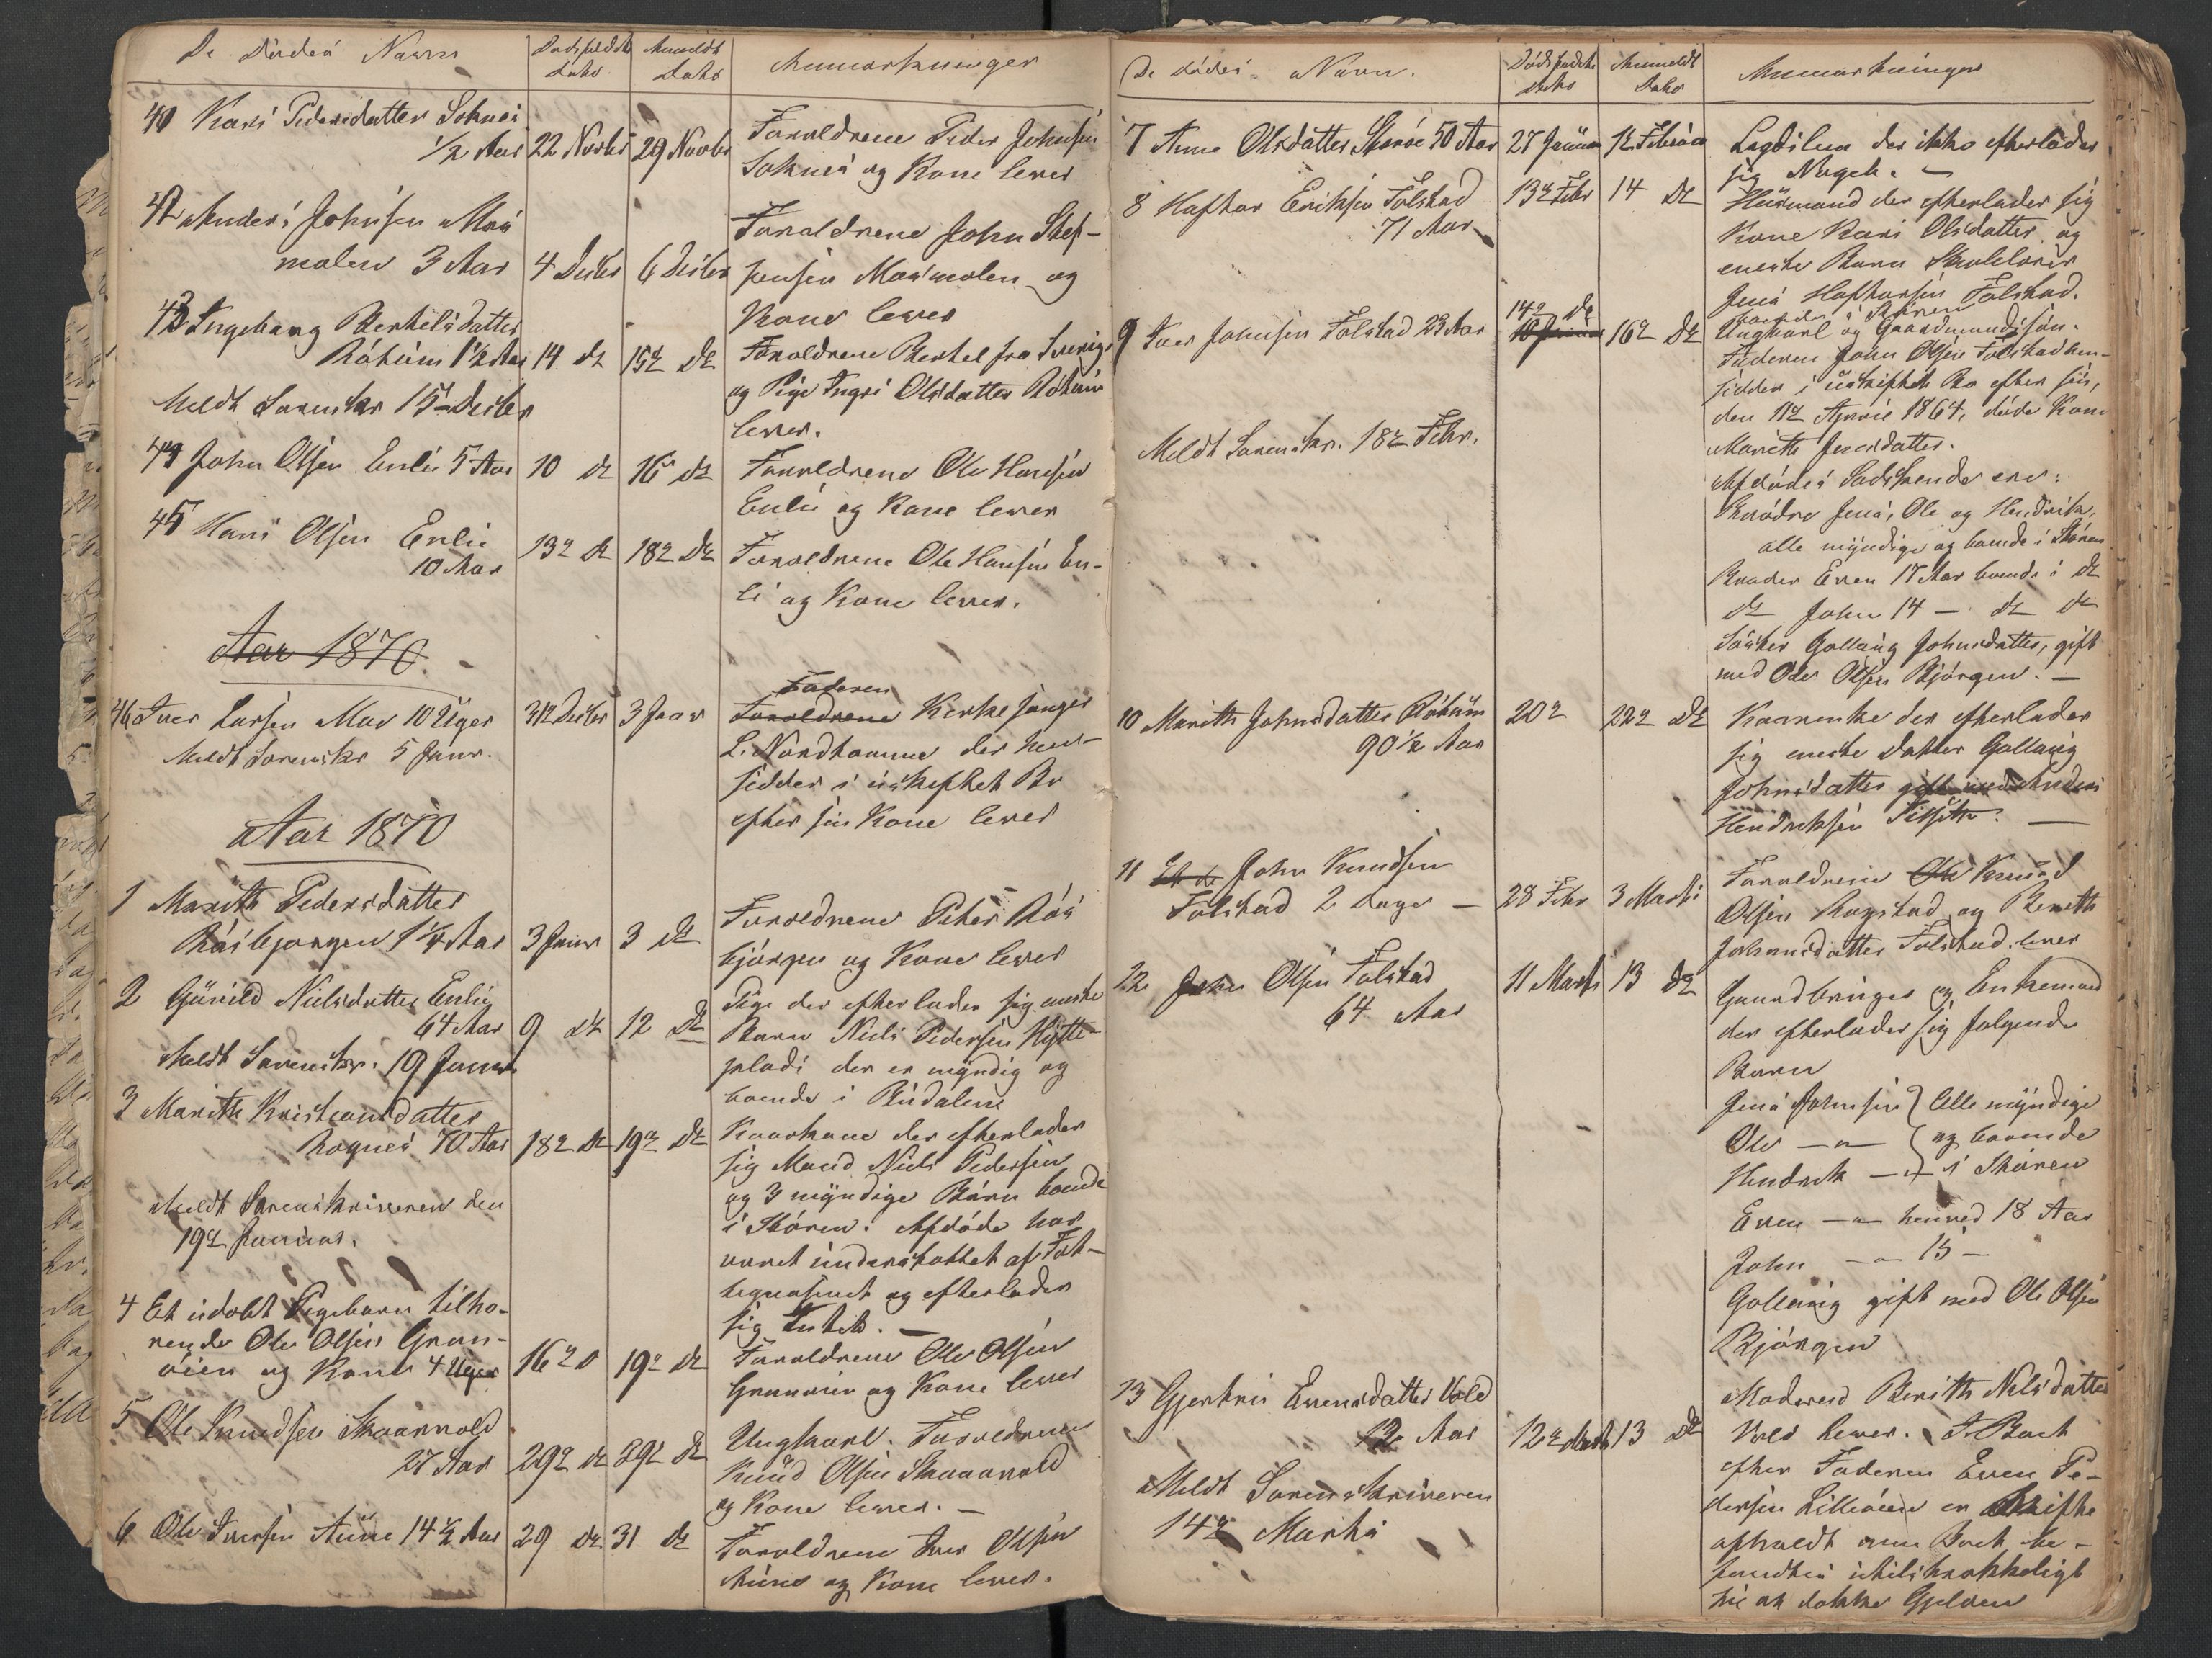 De Dødes Navn Dødsfaldets Dato Anmeldt Dato Anmærkninger
41 Kari Pedersdatter Soknes
½ Aar 22 Novbr 29 Novbr Foræeldrene Peder Johnsen
Soknes og Kone lever
42 Anders Johnsen Mos
molen 3 Aar 4 Decbr 6 Decbr Forældrene John Stef-
fensen Mosmolen og
Kone lever
43 Ingeborg Berthelsdatter
Róhúm 1½ Aar 14 de 15de de Forældrene Berthel fra Sverige
og Pige Ingri Olsdatter Róhúm
lever.
Meldt Sorenskr 15de Decbr
44 John Olsen Enli 5 Aar 10 de 16 de Forældrene Ole Hansen
Enli og Kone lever
45 Hans Olsen Enli
10 Aar 13de de 18de de Forældrene Ole Hansen En-
li og Kone lever.
Aar 1870
46 Iver Larsen Moe 10 Uger 31te Decbr 3 Janr Faderen
Forældrene Kirkesanger
L. Nordhamme der hen-
sidder i uskiftet Bo
efter sin Kone lever
Meldt Sorenskr 5 Janr.
Aar 1870
1 Marith Pedersdatter
Rósbjorgen 1¼ Aar 3 Janr 3 de Forældrene Peter Rós
bjórgen og Kone lever
2 Gúnild Nielsdatter Enlig
64 Aar 9 de 12 de Pige der efterlader sig eneste
Barn Niels Pedersen Hytte-
plads der er myndig og
boende i Búdalen
Meldt Sorenskr. 19 Januar
3 Marith Kristiansdatter
Rognes 70 Aar 18de de 19de de Kaarkone der efterlader
sig Mand Niels Pedersen
og 3 myndige Bórn boende
i Stóren. Afdóde har
været understøttet af Fat-
tigvæsenet og efterlader
sig Intet.
Meldt Sorenskriveren den
19de Januar.
4 Et udobt Pigebarn tilho-
rende Ole Olsen Gran-
óien og Kone 4 Uger 16de 19de de Forældrene Ole Olsen
Granóien og Kone lever
5 Ole Knudsen Skaarvold
27 Aar 29de de 29de de Ungkarl. Forældrene
Knúd Olsen Skaarvold
og Kone lever.
6 Ole Iversen Aúne 14½ Aar 29 de 31 de Forældrene Iver Olsen
Aúne og Kone lever.
De dódes Navn. Dódsfaldets Dato Anmeldt Dato Anmærkninger
7 Anne Olsdatter 50 Aar 27 Januar 1te Februar Lægdslem der ikke efterlader
sig Noget.
8 Haftor Eriksen Folstad
71 Aar 13de Febr 14 de Húsmand der efterlader sig
Kone Kari Olsdatter og
eneste Barn Skolelærer
Jens Haftorsen Folstad.
9 Iver Johnsen Folstad 23 Aar 14de de 16de de boende Stóren
Ungkarl og Gaardmandssón.
Faderen John Olsen Folstad hen-
sidder i uskiftet Bo efter sin,
den 11te April 1864, dóde Kone
Marith Jensdatter.
Afdódes Sódskende ere:
Bródre Jens, Ole og Hendrik,
alle myndige og boende i Stóren
Broder Even 17 Aar boende i de
de John 14 — de de
Sóster Gollaug Johnsdatter, gift
med Ole Olsen Bjórgen.
Meldt Sorenskr. 18de Febr.
10 Marith Johnsdatter Róhúm
90½ Aar 20de 22de de Kaarenke der efterlader
sig eneste Datter Gollaug
Johnsdatter gift med Anders
Hendriksen
11 Et de John Knudsen
Folstad 2 Dage — 28 Febr 3 Marts Forældrene Ole Knúd
Olsen Rogstad og Berith
Johnsdatter Folstad lever
12 John Olsen Folstad
64 Aar 11 Marts 13 de Gaardbruger og Enkemand
der efterlader sig folgende
Barn
Jens Johnsen } Alle myndige
Ole — " — { og boende
Hendrik — " — } i Stóren
Even — " — henved 18 Aar
John — " 15 —
Gollaug gift med Ole Olsen
Bjórgen
13 Gjertrú Evensdatter Vold
12 Aar 12te Marts 13 de Moderen Berith Nilsdatter
Vold lever. I Boet
efter Faderen Even Pe-
dersen Lilleóien er Skifte
afholdt men Boet be-
fandtes utilstrækkeligt
til at dække Gjelden
Meldt Sorenskriveren
14de Marts